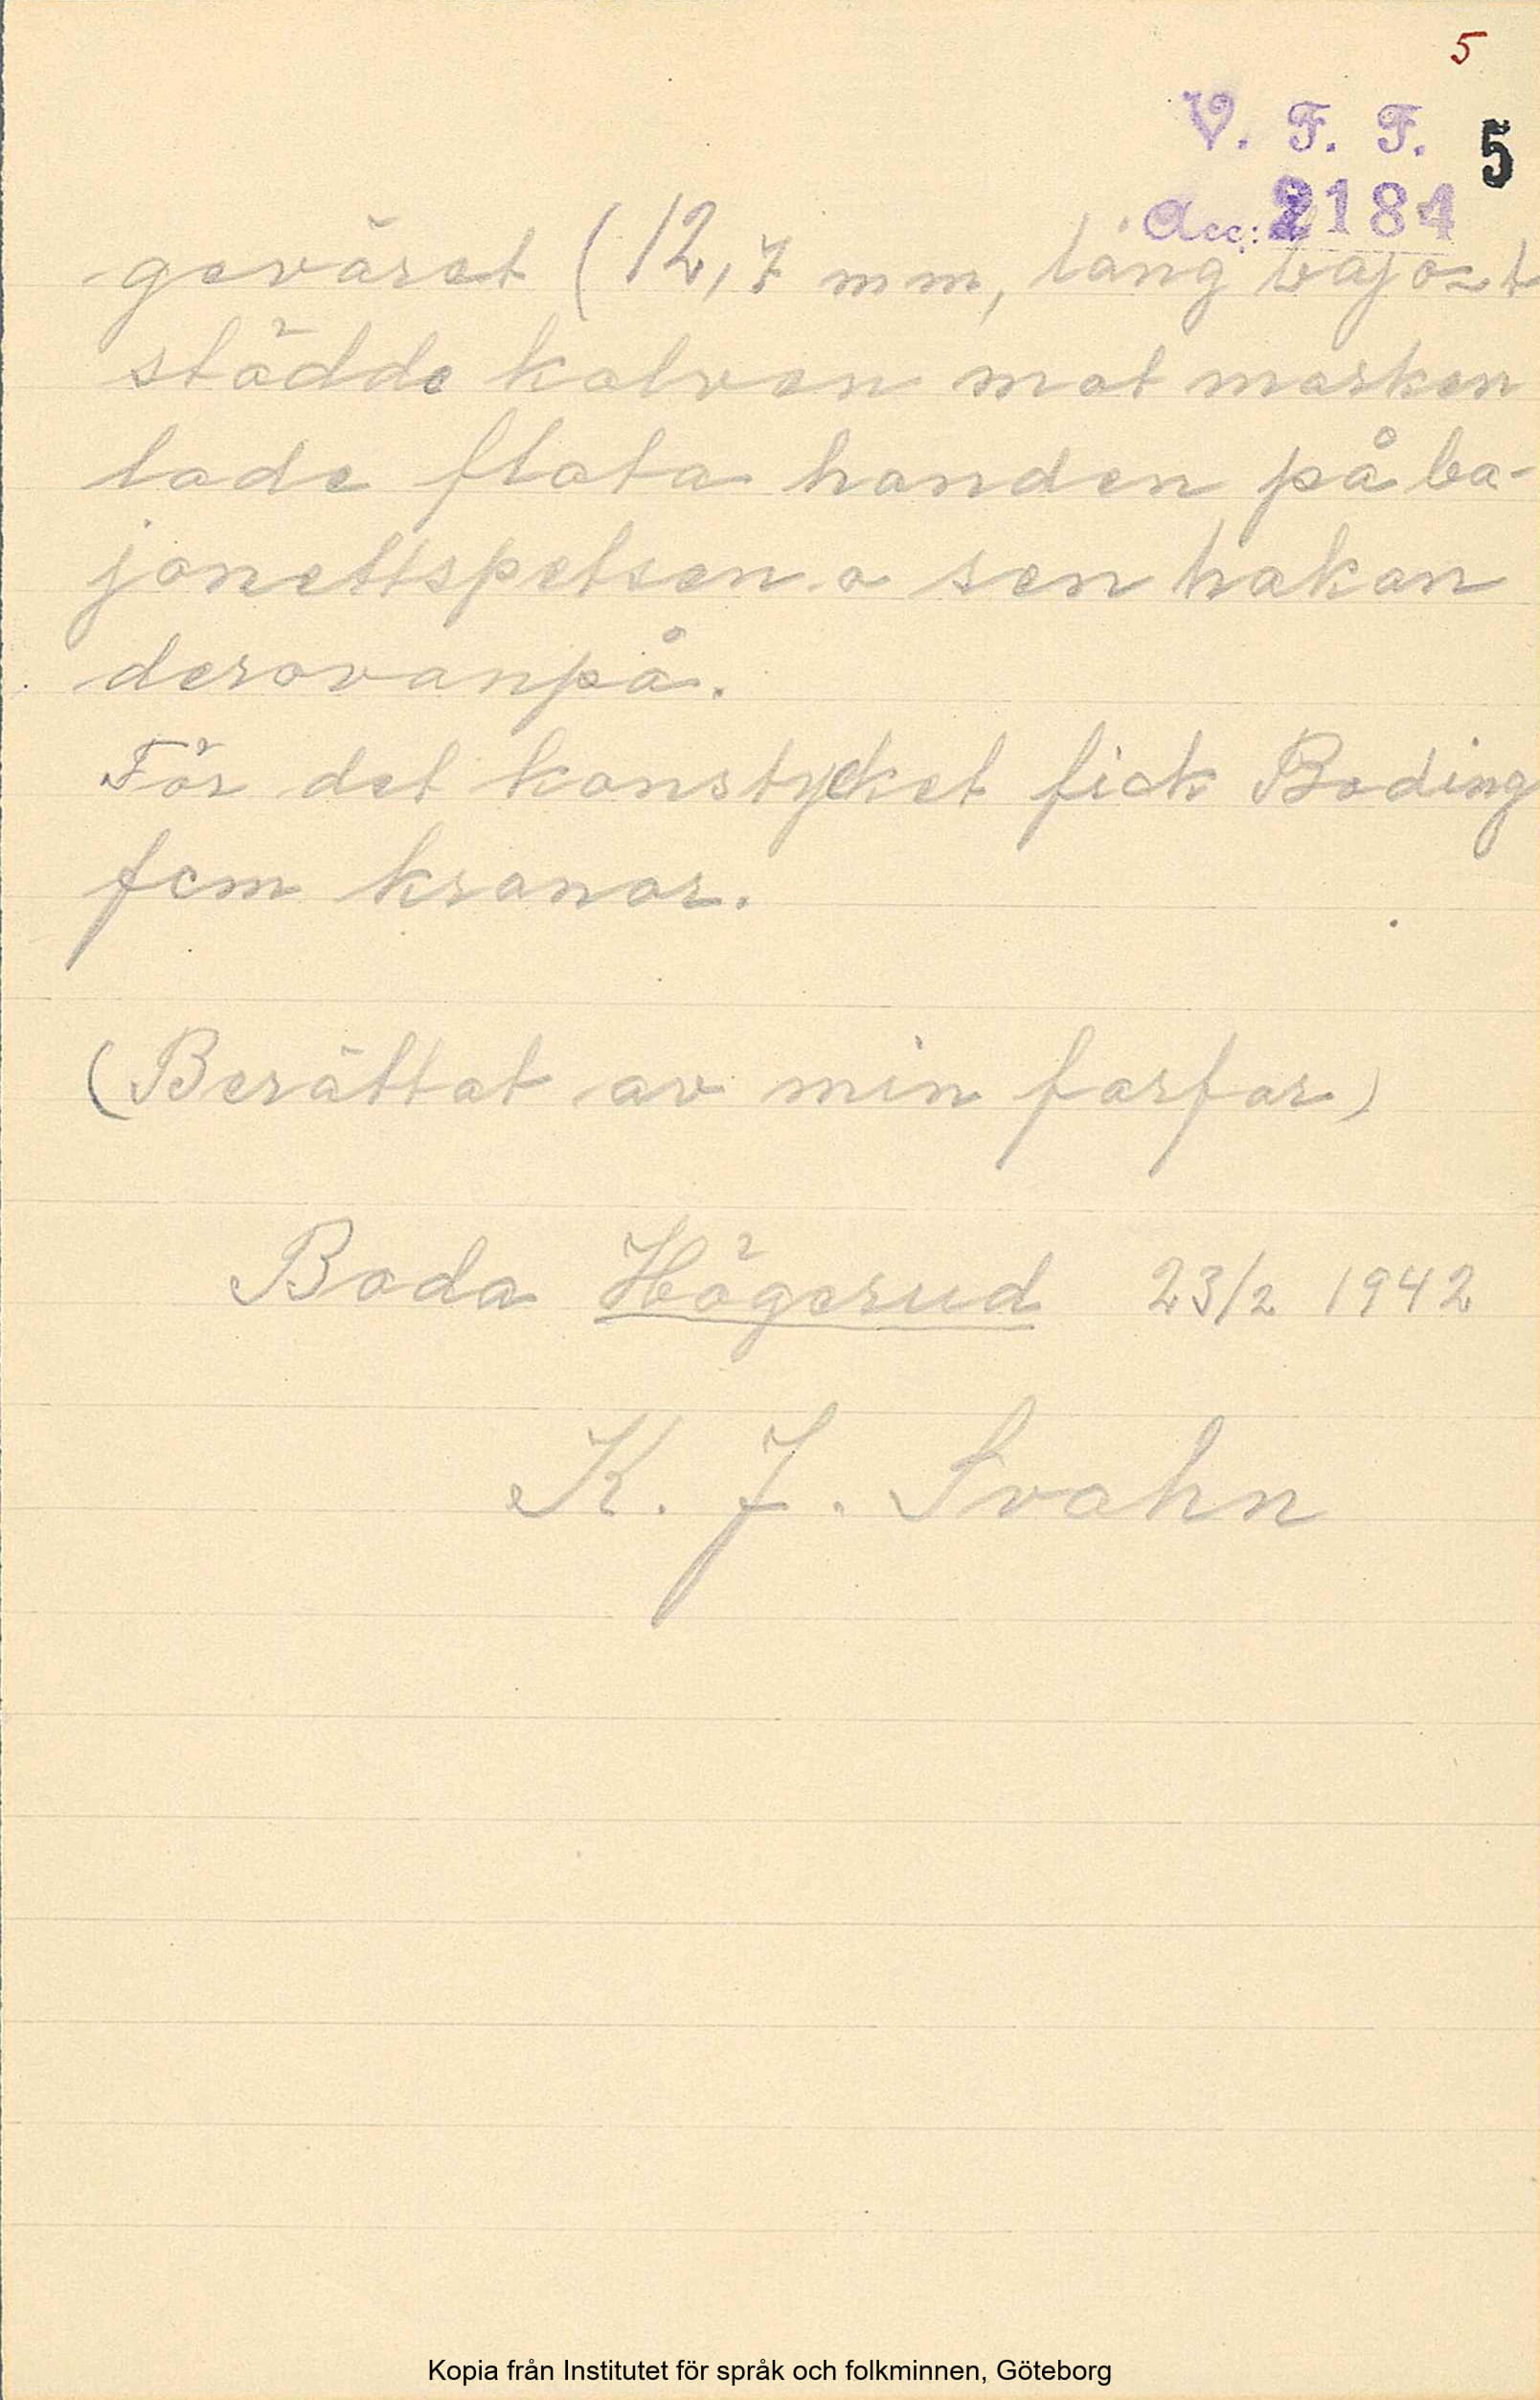 5
V. F. F. 5
Acc: 2184
geväret (12,7 mm, lång bajo-t
städde kolven mot marken
lade flata handen på ba-
jonettspetsen o sen hakan
derovanpå.
För det konstycket fick Boding
fem kronor.
(Berättat av min farfar)
Boda Högerud 23/2 1942
K. J. Svahn
Kopia från Institutet för språk och folkminnen, Göteborg